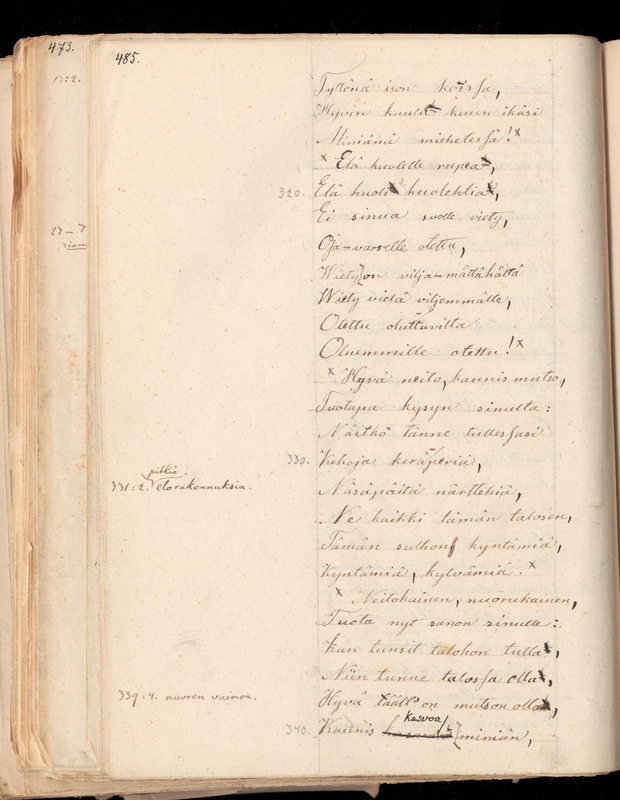 473.
485.
17:2.
Tyttönä ison koissa,
Hyvin kuulet kuun ikäsi
Miniänä miehelessä!x
x Elä huolelle rupea,
320. Elä huoli huolehtia,
Ei sinua suolle viety,
Oja-varrelle otettu,
Wiety on vilja-mättähältä
Wiety vielä viljemmälle,
Otettu oluttuvilta
Oluemmille otettu!x
x Hyvä neito, kaunis mutso,
Tuotapa kysyn sinulta:
Näitkö tänne tullessasi
330. Kekoja keräperiä,
331:2. pitkiä elorakennuksia.
Näsäpäitä närttehiä,
Ne kaikki tämän talosen,
Tämän sulhon kyntämiä,
Kyntämiä, kylvämiä.x
x Neitokainen, nuorukainen,
Tuota nyt sanon sinulle:
Kun tunsit talohon tulla,
Niin tunne talossa olla,
339:4. nuoren vaimon.
Hyvä tääll' on mutson olla,
340. Kaunis kasvoa miniän,